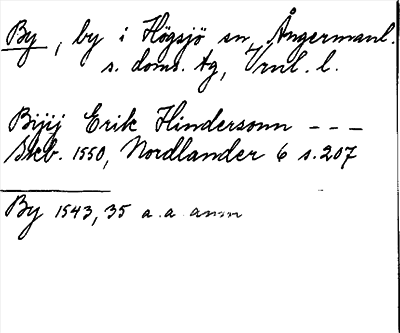 By, by i Högsjö sn, Ångermanl.
s. doms. tg, Vrnl. l.
Bijij Erik Hindersonn - - -
Skb. 1550, Nordlander 6 s. 207
By 1543, 35 a. a. anm